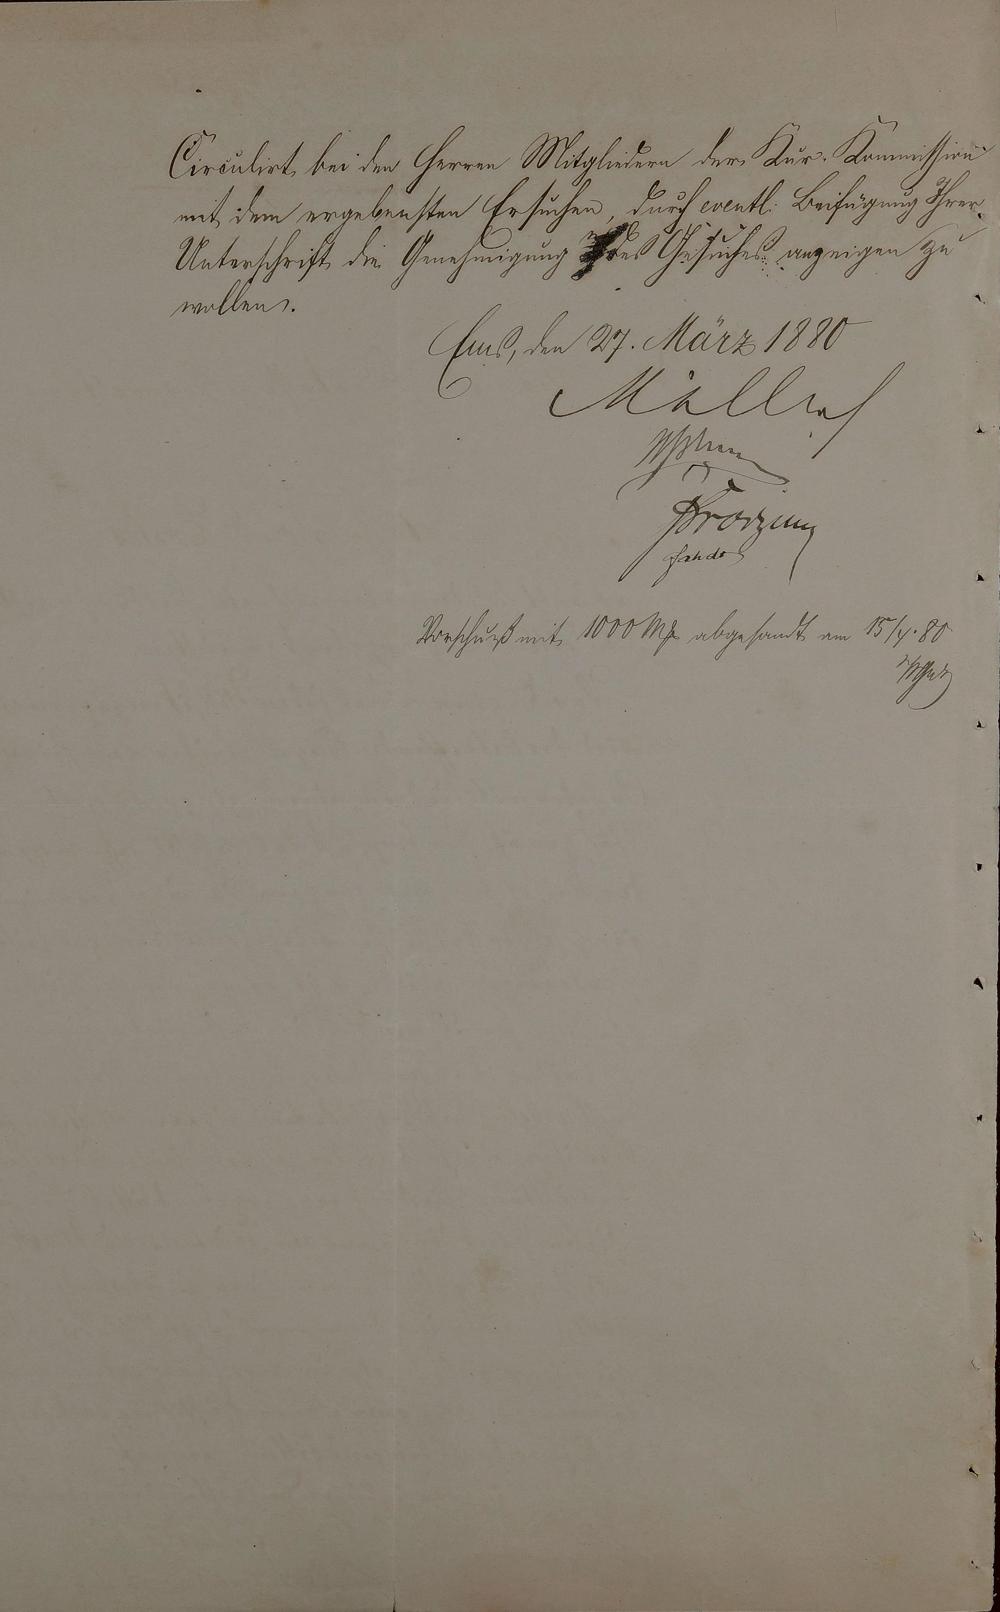 Circulirt bei den Herren Mitgliedern der Kur-Kommission
mit dem ergebensten Ersuchen, durch eventl. Beifügung Ihrer
Unterschrift die Genehmigung des Gesuches anzeigen zu
wollen.
Ems, den 27. März 1880
Vorschuß mit 1000 Mk abgesandt am 15/4. 80